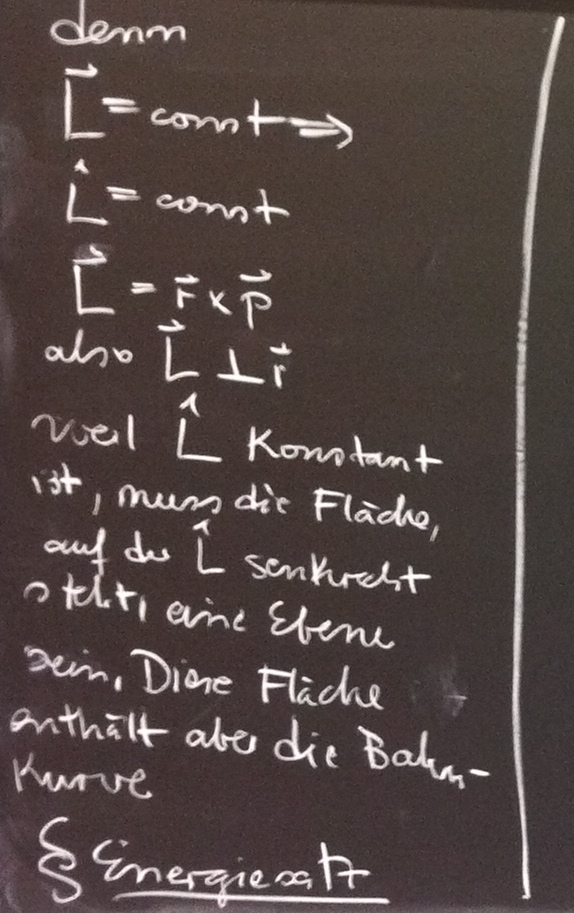 denn
$\vec{L}$ = const ⇒
$\hat{L}$ = const
$\vec{L}$ = $\vec{r}$ × $\vec{p}$
also $\vec{L}$ ⊥ $\vec{r}$
weil $\hat{L}$ Konstant
ist, muss die Fläche,
auf der $\hat{L}$ senkrecht
steht, eine Ebene
sein. Diese Fläche
enthält aber die Bahn-
Kurve
§ Energiesatz